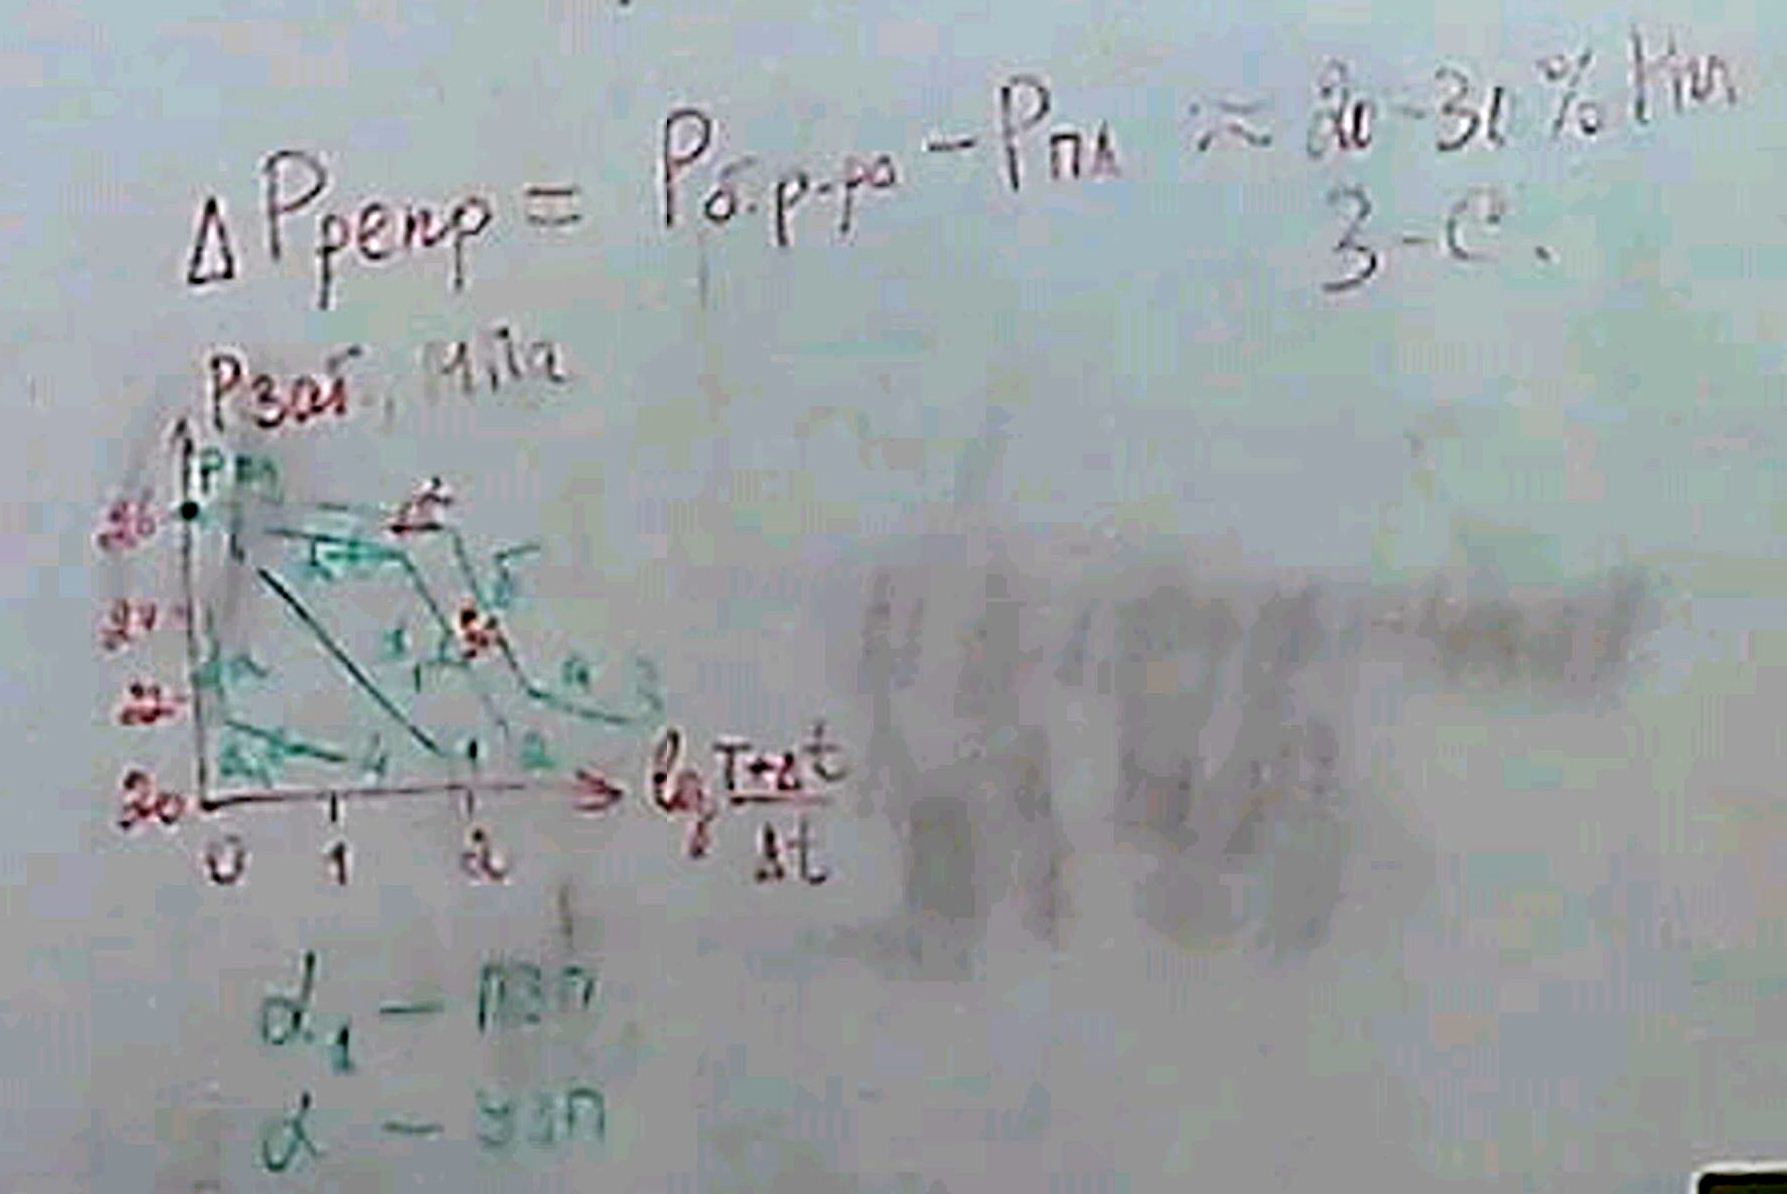 ΔPрепр = Pб.р-ра - Pпл ≈ 20-30% Pпл
З-С.
Pзаб, МПа
Pпл
26
24
22
20
0 1 2
lg T+Δt / Δt
α₁ - ПЗП
α - УЗП